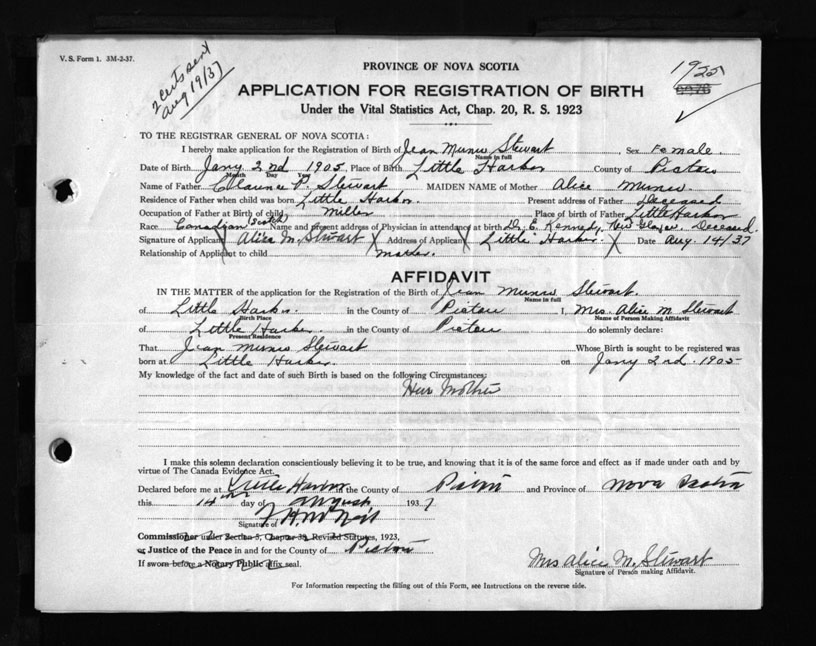 V. S. Form 1. 3M-2-37.
2 certs sent
Aug 19/37
PROVINCE OF NOVA SCOTIA
1925
APPLICATION FOR REGISTRATION OF BIRTH
Under the Vital Statistics Act, Chap. 20, R. S. 1923
TO THE REGISTRAR GENERAL OF NOVA SCOTIA:
I hereby make application for the Registration of Birth of Jean Munro Stewart, Sex Female
Name in full
Date of Birth Jany 2nd 1905, Place of Birth Little Harbor County of Pictou
Month Day Year
Name of Father Clarence P. Stewart MAIDEN NAME of Mother Alice Munro.
Residence of Father when child was born Little Harbor. Present address of Father Deceased
Occupation of Father at Birth of child Miller Place of birth of Father Little Harbor
Race Canadian Scotch Name and present address of Physician in attendance at birth Dr. E. Kennedy, New Glasgow. Deceased.
Signature of Applicant Alice M. Stewart Address of Applicant Little Harbor. Date Aug. 14/37
Relationship of Applicant to child mother.
AFFIDAVIT
IN THE MATTER of the application for the Registration of the Birth of Jean Munro Stewart.
Name in full
of Little Harbor. in the County of Pictou I, Mrs. Alice M Stewart
Birth Place Name of Person Making Affidavit
of Little Harbor. in the County of Pictou do solemnly declare:
Present Residence
That Jean Munro Stewart Whose Birth is sought to be registered was
born at Little Harbor. on Jany 2nd. 1905
My knowledge of the fact and date of such Birth is based on the following Circumstances:
Her Mother
I make this solemn declaration conscientiously believing it to be true, and knowing that it is of the same force and effect as if made under oath and by
virtue of The Canada Evidence Act.
Declared before me at Little Harbor in the County of Pictou and Province of Nova Scotia
this 14th day of August 1937
Signature of
Commissioner under Section 3, Chapter 38, Revised Statutes, 1923,
or Justice of the Peace in and for the County of Pictou
If sworn before a Notary Public affix seal.
Mrs Alice M. Stewart
Signature of Person making Affidavit.
For Information respecting the filling out of this Form, see Instructions on the reverse side.